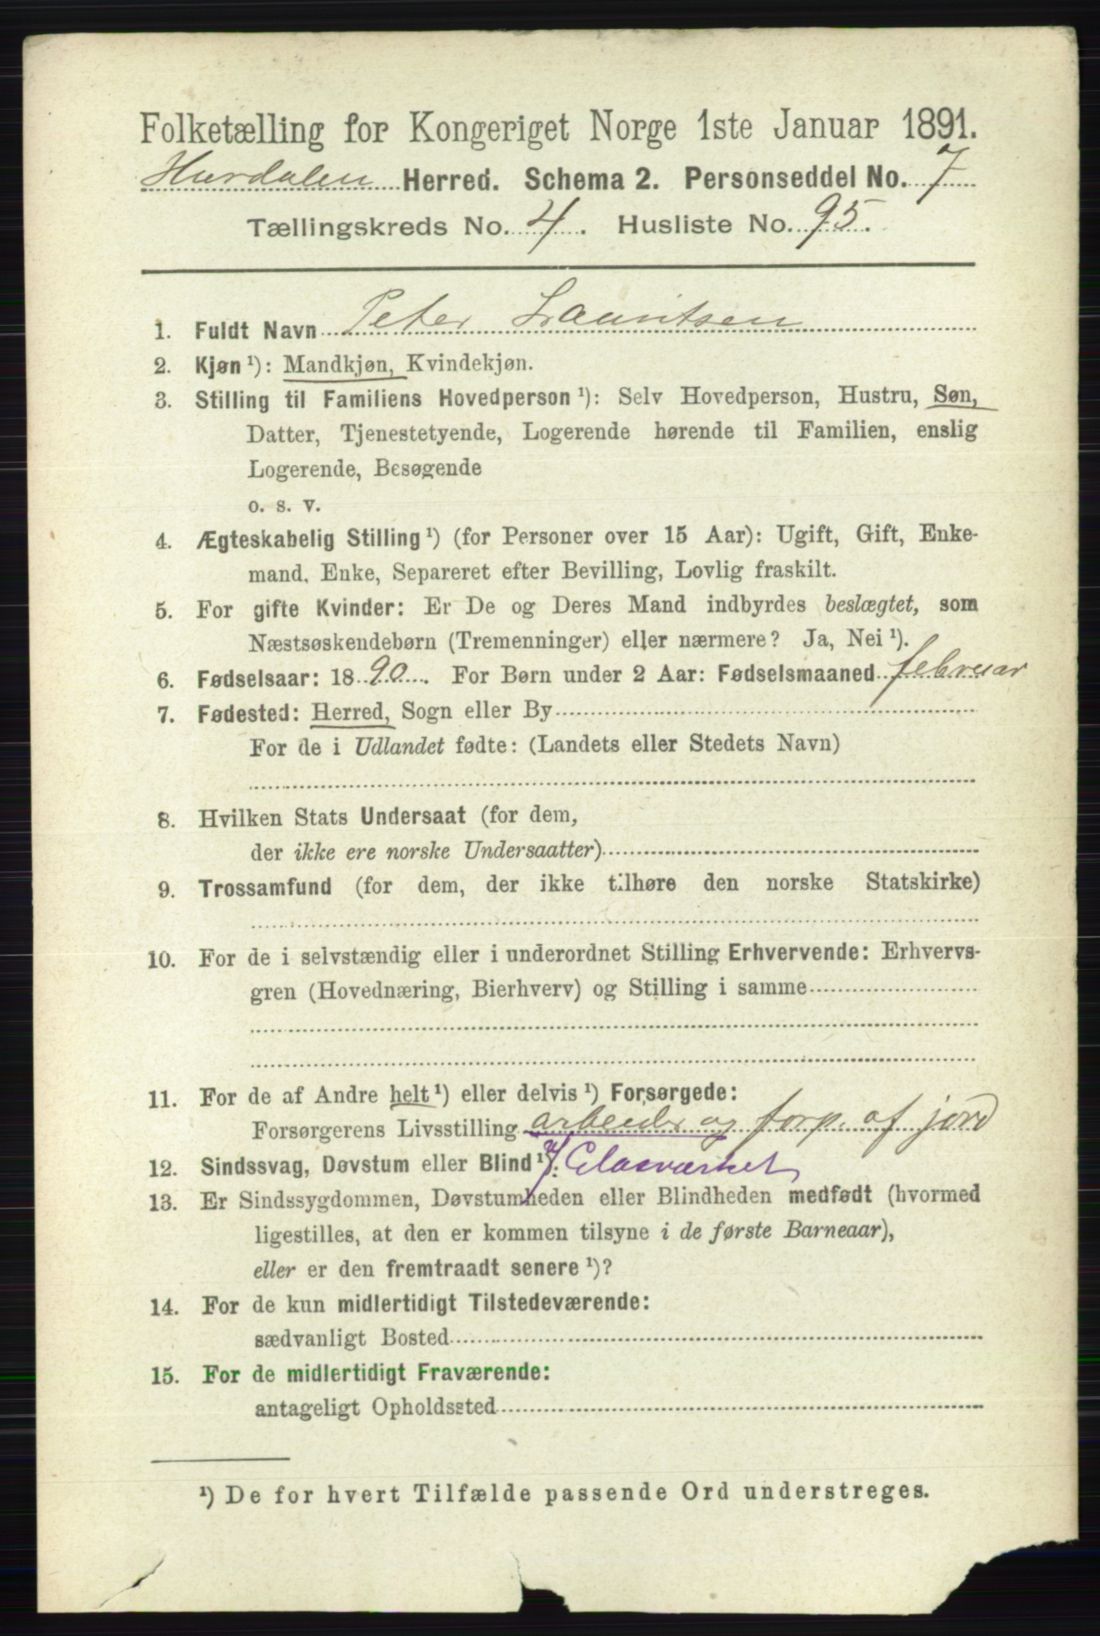 Folketælling for Kongeriget Norge 1ste Januar 1891.
Hurdalen Herred. Schema 2. Personseddel No. 7
Tællingskreds No. 4. Husliste No. 95.
1. Fuldt Navn Peter Lauritsen
2. Kjøn ¹): Mandkjøn, Kvindekjøn.
3. Stilling til Familiens Hovedperson ¹): Selv Hovedperson, Hustru, Søn,
Datter, Tjenestetyende, Logerende hørende til Familien, enslig
Logerende, Besøgende
o. s. v.
4. Ægteskabelig Stilling ¹) (for Personer over 15 Aar): Ugift, Gift, Enke-
mand, Enke, Separeret efter Bevilling, Lovlig fraskilt.
5. For gifte Kvinder: Er De og Deres Mand indbyrdes beslægtet, som
Næstsøskendebørn (Tremenninger) eller nærmere? Ja, Nei ¹).
6. Fødselsaar: 1890. For Børn under 2 Aar: Fødselsmaaned februar
7. Fødested: Herred, Sogn eller By
For de i Udlandet fødte: (Landets eller Stedets Navn)
8. Hvilken Stats Undersaat (for dem,
der ikke ere norske Undersaatter)
9. Trossamfund (for dem, der ikke tilhøre den norske Statskirke)
10. For de i selvstændig eller i underordnet Stilling Erhvervende: Erhvervs-
gren (Hovednæring, Bierhverv) og Stilling i samme
11. For de af Andre helt ¹) eller delvis ¹) Forsørgede:
Forsørgerens Livsstilling arbeider og forp. af jord
12. Sindssvag, Døvstum eller Blind ¹). Glasværket
13. Er Sindssygdommen, Døvstumheden eller Blindheden medfødt (hvormed
ligestilles, at den er kommen tilsyne i de første Barneaar),
eller er den fremtraadt senere ¹)?
14. For de kun midlertidigt Tilstedeværende:
sædvanligt Bosted
15. For de midlertidigt Fraværende:
antageligt Opholdssted
¹) De for hvert Tilfælde passende Ord understreges.